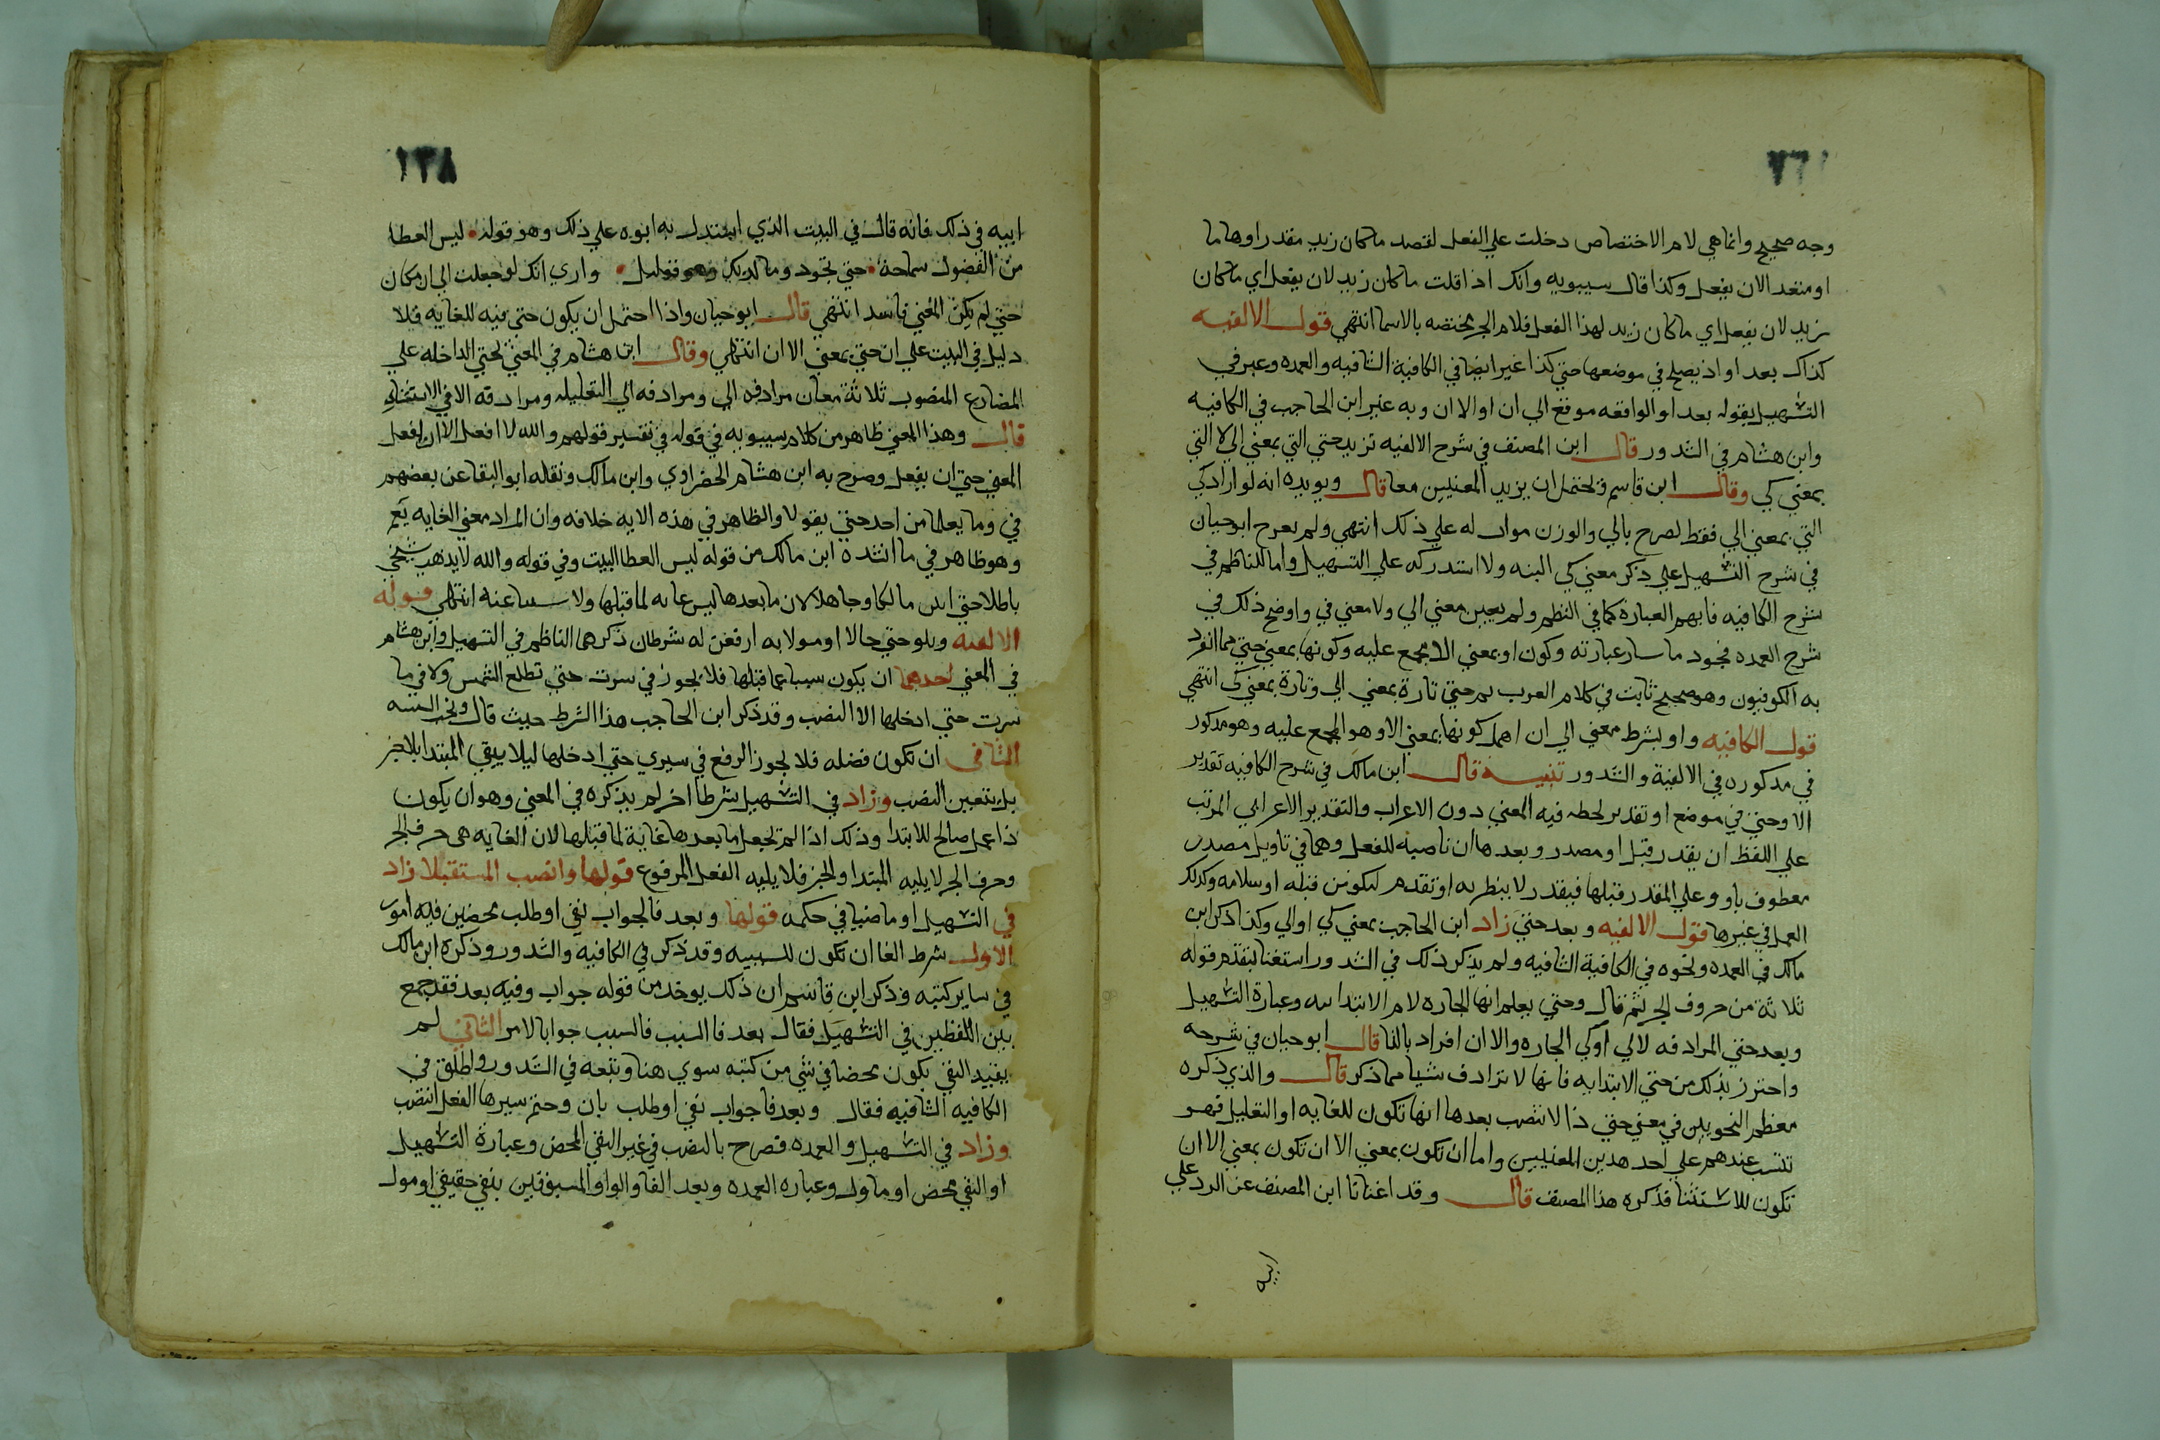 وجه صحيح وانما هي لام الاختصاص دخلت علي الفعل لقصد ما كان زيد مقدرا وهاما
او متعدا لان يفعل وكذا قال سيبويه وانك اذا قلت ما كان زيد لان يفعل اي ما كان
زيد لان يفعل اي ما كان زيد لهذا الفعل فلام الجر مختصه بالاسما انتهي قول الالفيه
كذاك بعد او اذ يصلح في موضعها حتي كذا غير ايضا في الكافية الشافيه والعمده وعبر في
التسهيل بقوله بعد او الواقعه موقع الي ان او الا ان وبه عبر ابن الحاجب في الكافيه
وابن هشام في الشدور قال ابن المصنف في شرح الالفيه تريد حتي التي بمعني الي لا التي
بمعني كي وقال ابن قاسم ويحتمل ان يريد المعنيين معا قال ويويده انه لو اراد كي
التي بمعني الي فقط لصرح بالي والوزن موات له علي ذلك انتهي ولم يعرج ابو حيان
في شرح التسهيل علي ذكر معني كي البته ولا استدركه علي التسهيل واما الناظم في
شرح الكافيه فابهم العبارة كما في النظم ولم يعين معني الي ولا معني في واوضح ذلك في
شرح العمده فجود ما سار عبارته وكون او بمعني الا مجمع عليه وكونها بمعني حتي مما انفرد
به الكوفيون وهو صحيح ثابت في كلام العرب حتي تارة بمعني الي وتارة بمعني كي انتهي
قول الكافيه واو بشرط معني الي ان اهمل كونها بمعني الا وهو المجمع عليه وهو مدكور
في مدكوره في الالفية والشدور تنبيه قال ابن مالك في شرح الكافيه تقدير
الا وحتي في موضع او تقدير لحظ فيه المعني دون الاعراب والتقدير الاعرابي المرتب
علي اللفظ ان يقدر قبل او مصدر وبعدها ان ناصبه للفعل وهما في تاويل مصدر
معطوف باو وعلي المقدر قبلها فيقدر لا ينظر به او تقدم ليكونن قتله او سلامه وكذلك
العمل في غيرها قول الالفيه وبعد حتي زاد ابن الحاجب بمعني كي او الي وكذا ذكر ابن
مالك في العمده ونحوه في الكافية الشافيه ولم يذكر ذلك في الشدور استغنا بتقدم قوله
ثلاثة من حروف الجر ثم قال وحتي يعلم انها الجاره لام الابتدائيه وعبارة التسهيل
وبعد حتي المرادفه لالي او كي الجاره والا ان افراد بالفا قال ابو حيان في شرحه
واحترز بذلك من حتي الابتدايه فانها لا ترادف شيا مما ذكر قال والذي ذكره
معظم النحويين في معني حتي ذا لا نتصب بعدها انها تكون للغايه او التعليل فهو
تنتسب عندهم علي احد هدين المعنيين واما ان تكون بمعني الا ان تكون بمعني الا ان
تكون للاستثنا فذكره هذا المصنف قال وقد اغنانا ابن المصنف عن الرد علي
ابيه
١٣٨
ابيه في ذلك فانه قال في البيت الذي استدل به ابوه علي ذلك وهو قوله ليس العطا
من الفضول سماحة حتي تجود وما لديك قليل واري انك لو جعلت الي ان مكان
حتي لم يكن المعني فاسدا انتهي قال ابو حيان واذا احتمل ان يكون حتي فيه للغايه فلا
دليل في البيت علي ان حتي بمعني الا ان انتهي وقال ابن هشام في المعني لحتي الداخله علي
المضارع المنصوب ثلاثة معان مرادفه الي ومرادفه كي التعليله ومرادقه الا في الاستثنا
قال وهذا المعني ظاهر من كلام سيبويه في قوله في تفسير قولهم والله لا افعل الا ان تفعل
المعني حتي ان يفعل وصرح به ابن هشام الخضراوي وابن مالك ونقله ابو البقا عن بعضهم
في وما يعلمان من احد حتي يقولا والظاهر في هذه الايه خلافه وان المراد معني الغايه نعم
وهو ظاهر في ما انشده ابن مالك من قوله ليس العطا البيت وفي قوله والله لا يدهب شيخي
باطلا حتي ابير مالكا وكاهلا لان ما بعدها ليس غايه لما قبلها ولا سببا عنه انتهي قوله
الالفيه وتلو حتي حالا او مولا به ارفعن له شرطان ذكرهما الناظم في التسهيل وابن هشام
في المعني احدهما ان يكون سببا عما قبلها فلا يجوز في سرت حتي تطلع الشمس ولا في ما
سرت حتي ادخلها الا النصب وقد ذكر ابن الحاجب هذا الشرط حيث قال وتجب السببيه
الثاني ان تكون فضله فلا يجوز الرفع في سيري حتي ادخلها ليلا يبقي المبتدا بلا خبر
بل يتعين النصب وزاد في التسهيل شرطا اخر لم يذكره في المعني وهو ان يكون
ذا عمل صالح للابتدا وذلك اذا لم تجعل ما بعدها غاية لما قبلها لان الغايه هي حرف الجر
وحرف الجر لا يليه المبتدا والخبر فلا يليه الفعل المرفوع قولها وانصب المستقبلا زاد
في التسهيل او ماضيا في حكمه قولها وبعد فا لجواب نفي او طلب محضين فيه امور
الاول شرط الفا ان تكون للسببيه وقد ذكر في الكافيه والشدور وذكره ابن مالك
في ساير كتبه وذكر ابن قاسم ان ذلك يوخد من قوله جواب وفيه بعد فقد جمع
بين اللفظين في التسهيل فقال بعد فا السبب فالسبب جوابا لامر الثاني لم
يقيد النفي بكون محضا في شي من كتبه سوي هنا وتبعه في الشدور واطلق في
الكافيه الشافيه فقال وبعد فا جواب نفي او طلب بان وحتم سيرها الفعل انتصب
وزاد في التسهيل والعمده فصرح بالنصب في غير النفي المحض وعبارة التسهيل
او النفي محض او ماول وعباره العمده وبعد الفا والواو المسبوقين بنفي حقيقي او مول